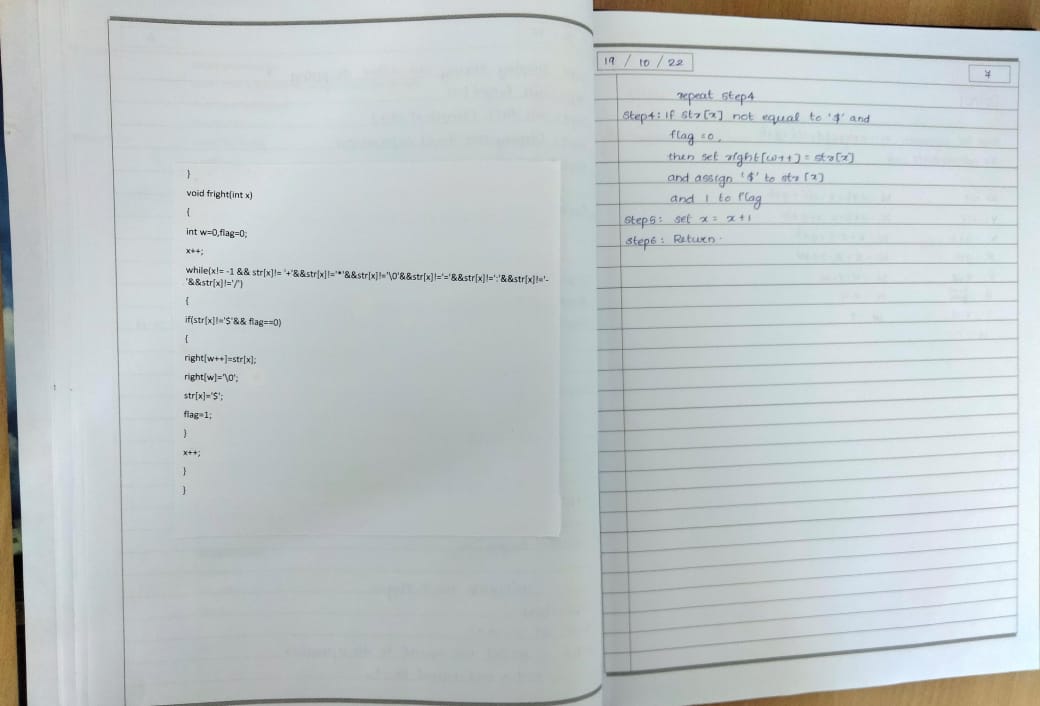 }
void fright(int x)
{
int w=0,flag=0;
x++;
while(x!= -1 && str[x]!= '+'&&str[x]!='*'&&str[x]!='\0'&&str[x]!='='&&str[x]!=':'&&str[x]!='-
'&&str[x]!='/')
{
if(str[x]!='$'&& flag==0)
{
right[w++]=str[x];
right[w]='\0';
str[x]='$';
flag=1;
}
x++;
}
}
19 / 10 / 22
7
repeat step4
Step4: if str[x] not equal to '$' and
flag =0,
then set right[w++] = str[x]
and assign '$' to str[x]
and 1 to flag
Step5: set x = x+1
Step6: Return.